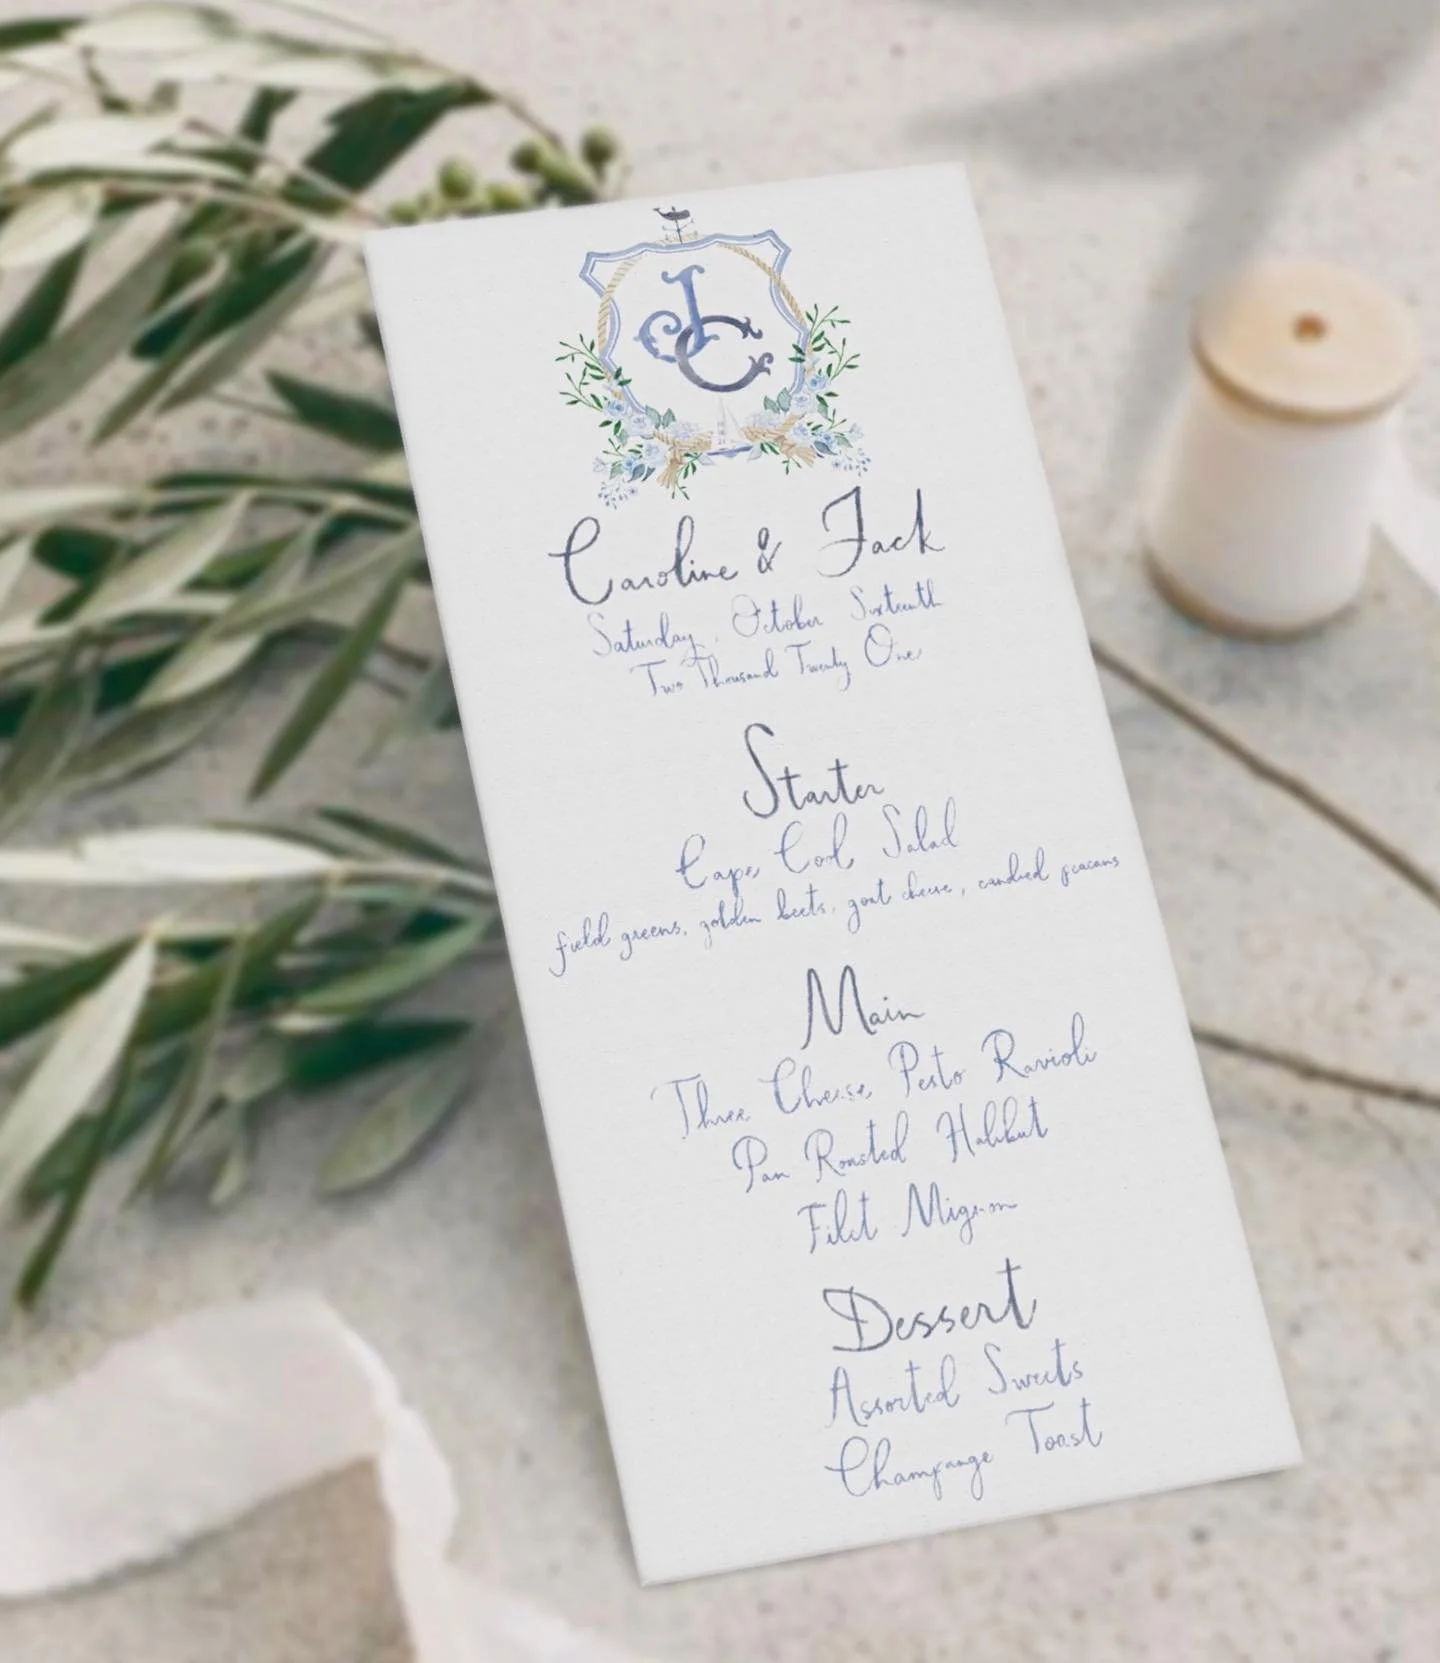 JC
Caroline & Jack
Saturday, October Sixteenth
Two Thousand Twenty One
Starter
Cape Cod Salad
field greens, golden beets, goat cheese, candied peacans
Main
Three Cheese Pesto Ravioli
Pan Roasted Halibut
Filet Mignon
Dessert
Assorted Sweets
Champange Toast